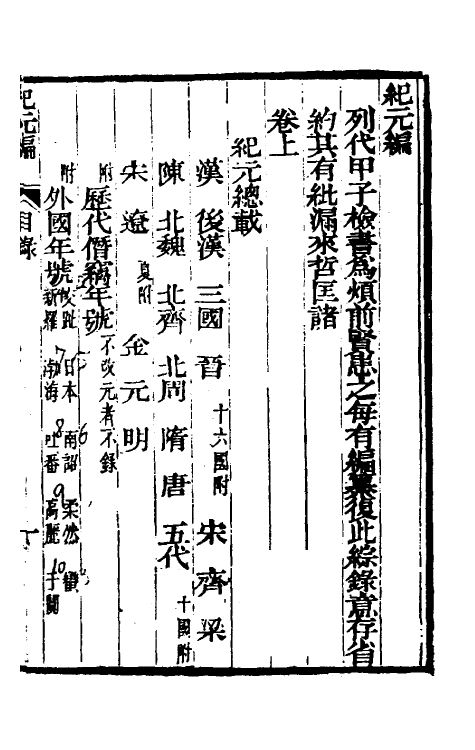 紀元編
列代甲子檢書為煩前賢患之每有編纂復此綜錄意存省
約其有紕漏來哲匡諸
卷上
紀元總載
漢 後漢 三國 晉 十六國附 宋 齊 梁
陳 北魏 北齊 北周 隋 唐 五代 十國附
宋 遼 夏附 金 元 明
附歷代僭竊年號 不改元者不錄
附外國年號 交趾 日本 南詔 柔然
新羅 7 南海 8 吐番 9 高麗 10 于闐
紀元編 目錄